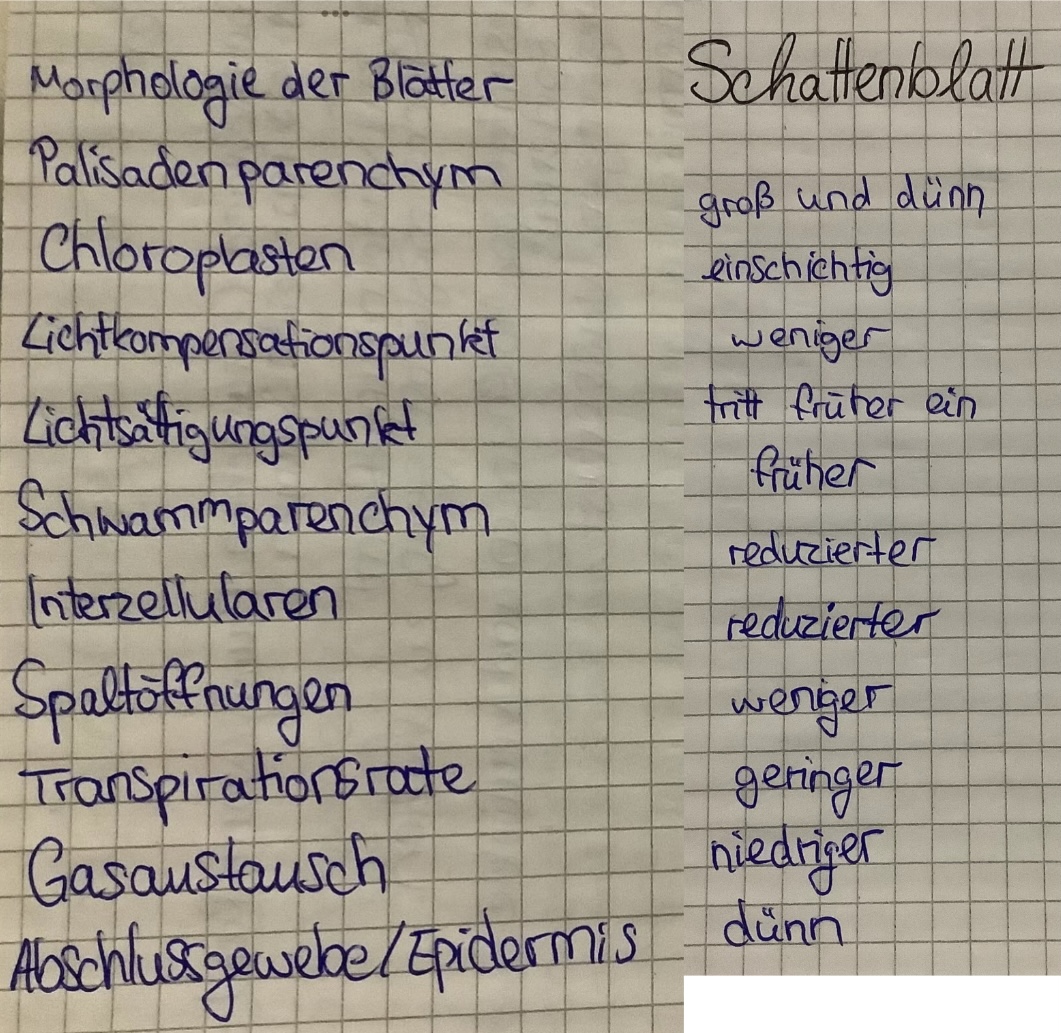 Morphologie der Blätter
Palisadenparenchym
Chloroplasten
Lichtkompensationspunkt
Lichtsättigungspunkt
Schwammparenchym
Interzellularen
Spaltöffnungen
Transpirationsrate
Gasaustausch
Abschlussgewebe/Epidermis
Schattenblatt
groß und dünn
einschichtig
weniger
tritt früher ein
früher
reduzierter
reduzierter
weniger
geringer
niedriger
dünn